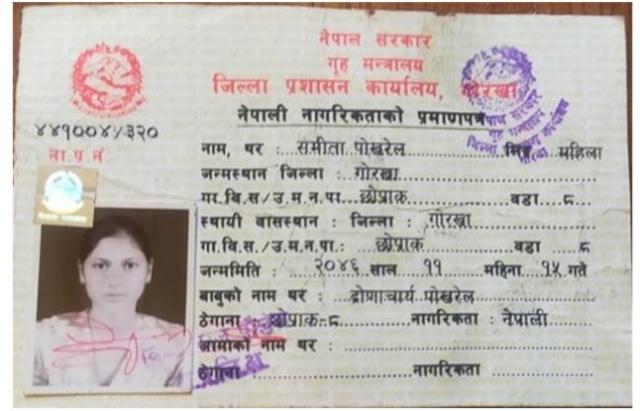 नेपाल सरकार
गृह मन्त्रालय
जिल्ला प्रशासन कार्यालय, गोरखा
नेपाली नागरिकताको प्रमाणपत्र
ना.प्र.नं.
नेपाल सरकार
गृह मन्त्रालय
नाम, थर : समीता पोखरेल लिङ्ग महिला
जन्मस्थान जिल्ला : गोरखा
गा.वि.स/उ.म.न.पा. छोप्राक वडा ८
स्थायी वासस्थान : जिल्ला : गोरखा
गा.वि.स./उ.म.न.पा.: छोप्राक वडा ८
जन्ममिति : २०४६ साल ११ महिना १५ गते
बाबुको नाम थर : द्रोणाचार्य पोखरेल
ठेगाना : छोप्राक-८ नागरिकता : नेपाली
आमाको नाम थर :
ठेगाना नागरिकता